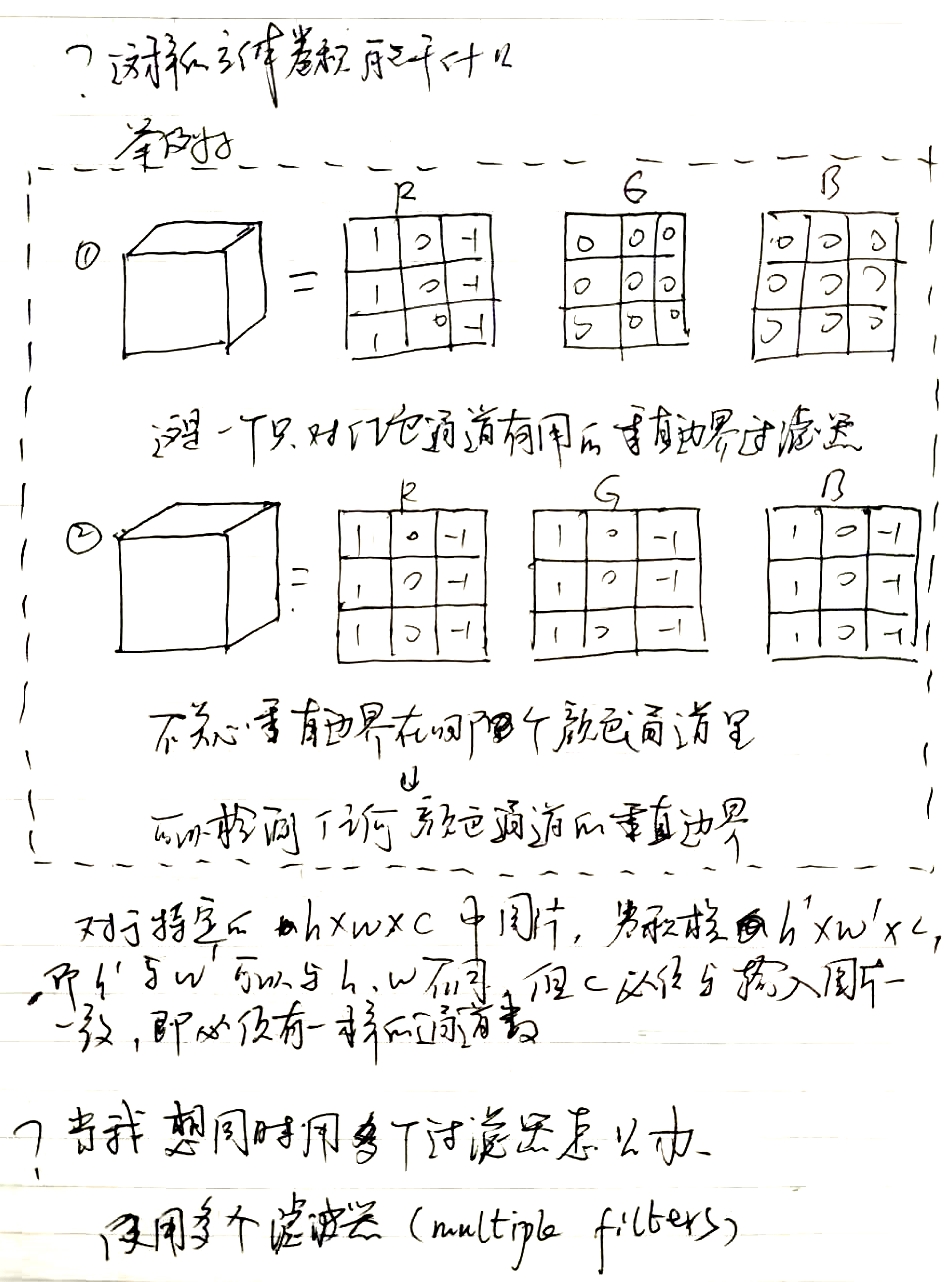 ? 这样的立体卷积能干什么
举例子
R G B
① = 1 0 -1 0 0 0 0 0 0
1 0 -1 0 0 0 0 0 0
1 0 -1 0 0 0 0 0 0
这是一个只对红色通道有用的垂直边界过滤器
R G B
② = 1 0 -1 1 0 -1 1 0 -1
1 0 -1 1 0 -1 1 0 -1
1 0 -1 1 0 -1 1 0 -1
不关心垂直边界在哪个颜色通道里
⇓
可以检测任何颜色通道的垂直边界
对于特定的 h×w×c 中图片, 卷积核 h'×w'×c,
即 h' 与 w' 可以与 h、w 不同, 但 c 必须与输入图片一
一致, 即必须有一样的通道数
? 当我想同时用多个过滤器怎么办
使用多个滤波器 (multiple filters)